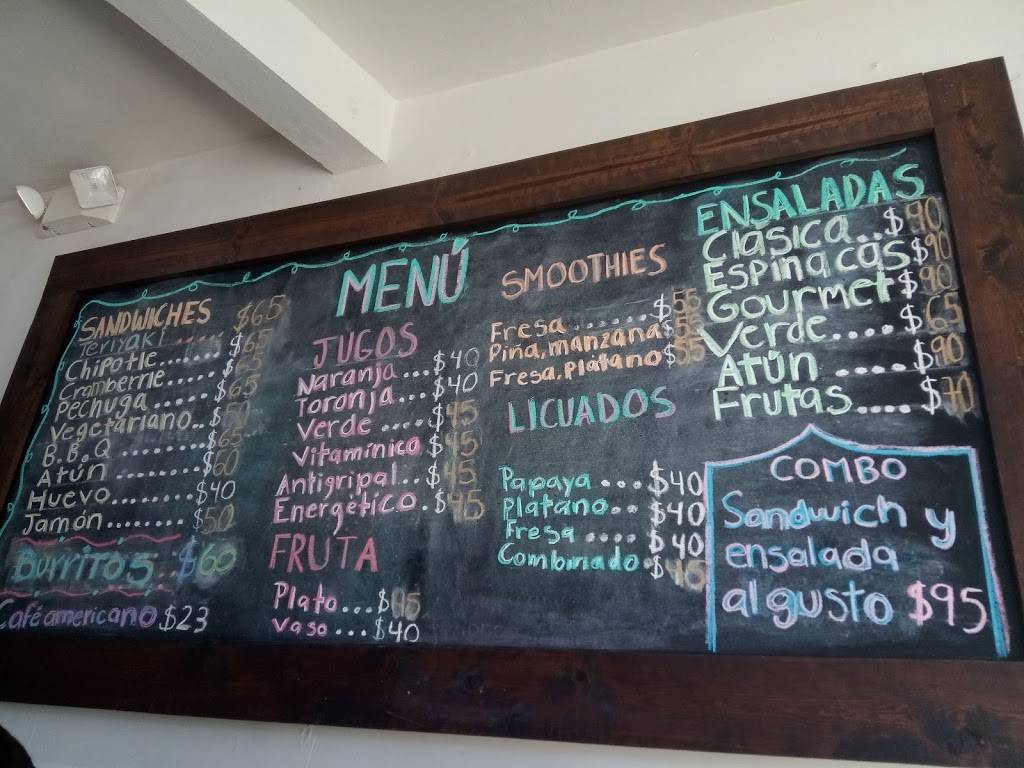 MENÚ
SANDWICHES $65
Teriyaki .... $65
Chipotle....... $65
Cramberrie..... $65
Pechuga ...... $65
Vegetariano.. $50
B.B.Q ........ $65
Atún ........ $60
Huevo......... $40
Jamón ........ $50
Burritos.. $60
Café americano $23
JUGOS
Naranja...$40
Toronja...$40
Verde ....$45
Vitamínico $45
Antigripal...$45
Energético.$45
FRUTA
Plato...$45
Vaso ...$40
SMOOTHIES
Fresa.......$55
Piña, manzana $55
Fresa, plátano $55
LICUADOS
Papaya ...$40
Plátano..$40
Fresa ....$40
Combinado.$45
ENSALADAS
Clásica..$90
Espinacas $90
Gourmet $90
Verde....$65
Atún ....$90
Frutas....$70
COMBO
Sandwich y
ensalada
al gusto $95